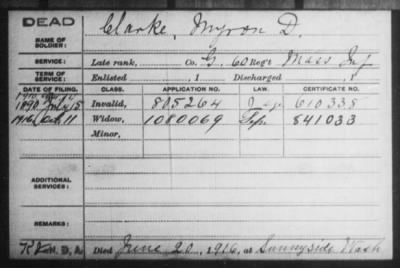 DEAD
NAME OF SOLDIER: Clarke, Myron D.
SERVICE: Late rank, Co. G, 60 Reg't Mass Inf
TERM OF SERVICE: Enlisted , 1 Discharged , 1
DATE OF FILING. CLASS. APPLICATION NO. LAW. CERTIFICATE NO.
1890 July 15 Invalid, 805264 610338
1916 Oct 11 Widow, 1080069 841033
Minor,
ADDITIONAL SERVICES:
REMARKS:
Died June 20, 1916, at Sunnyside Wash